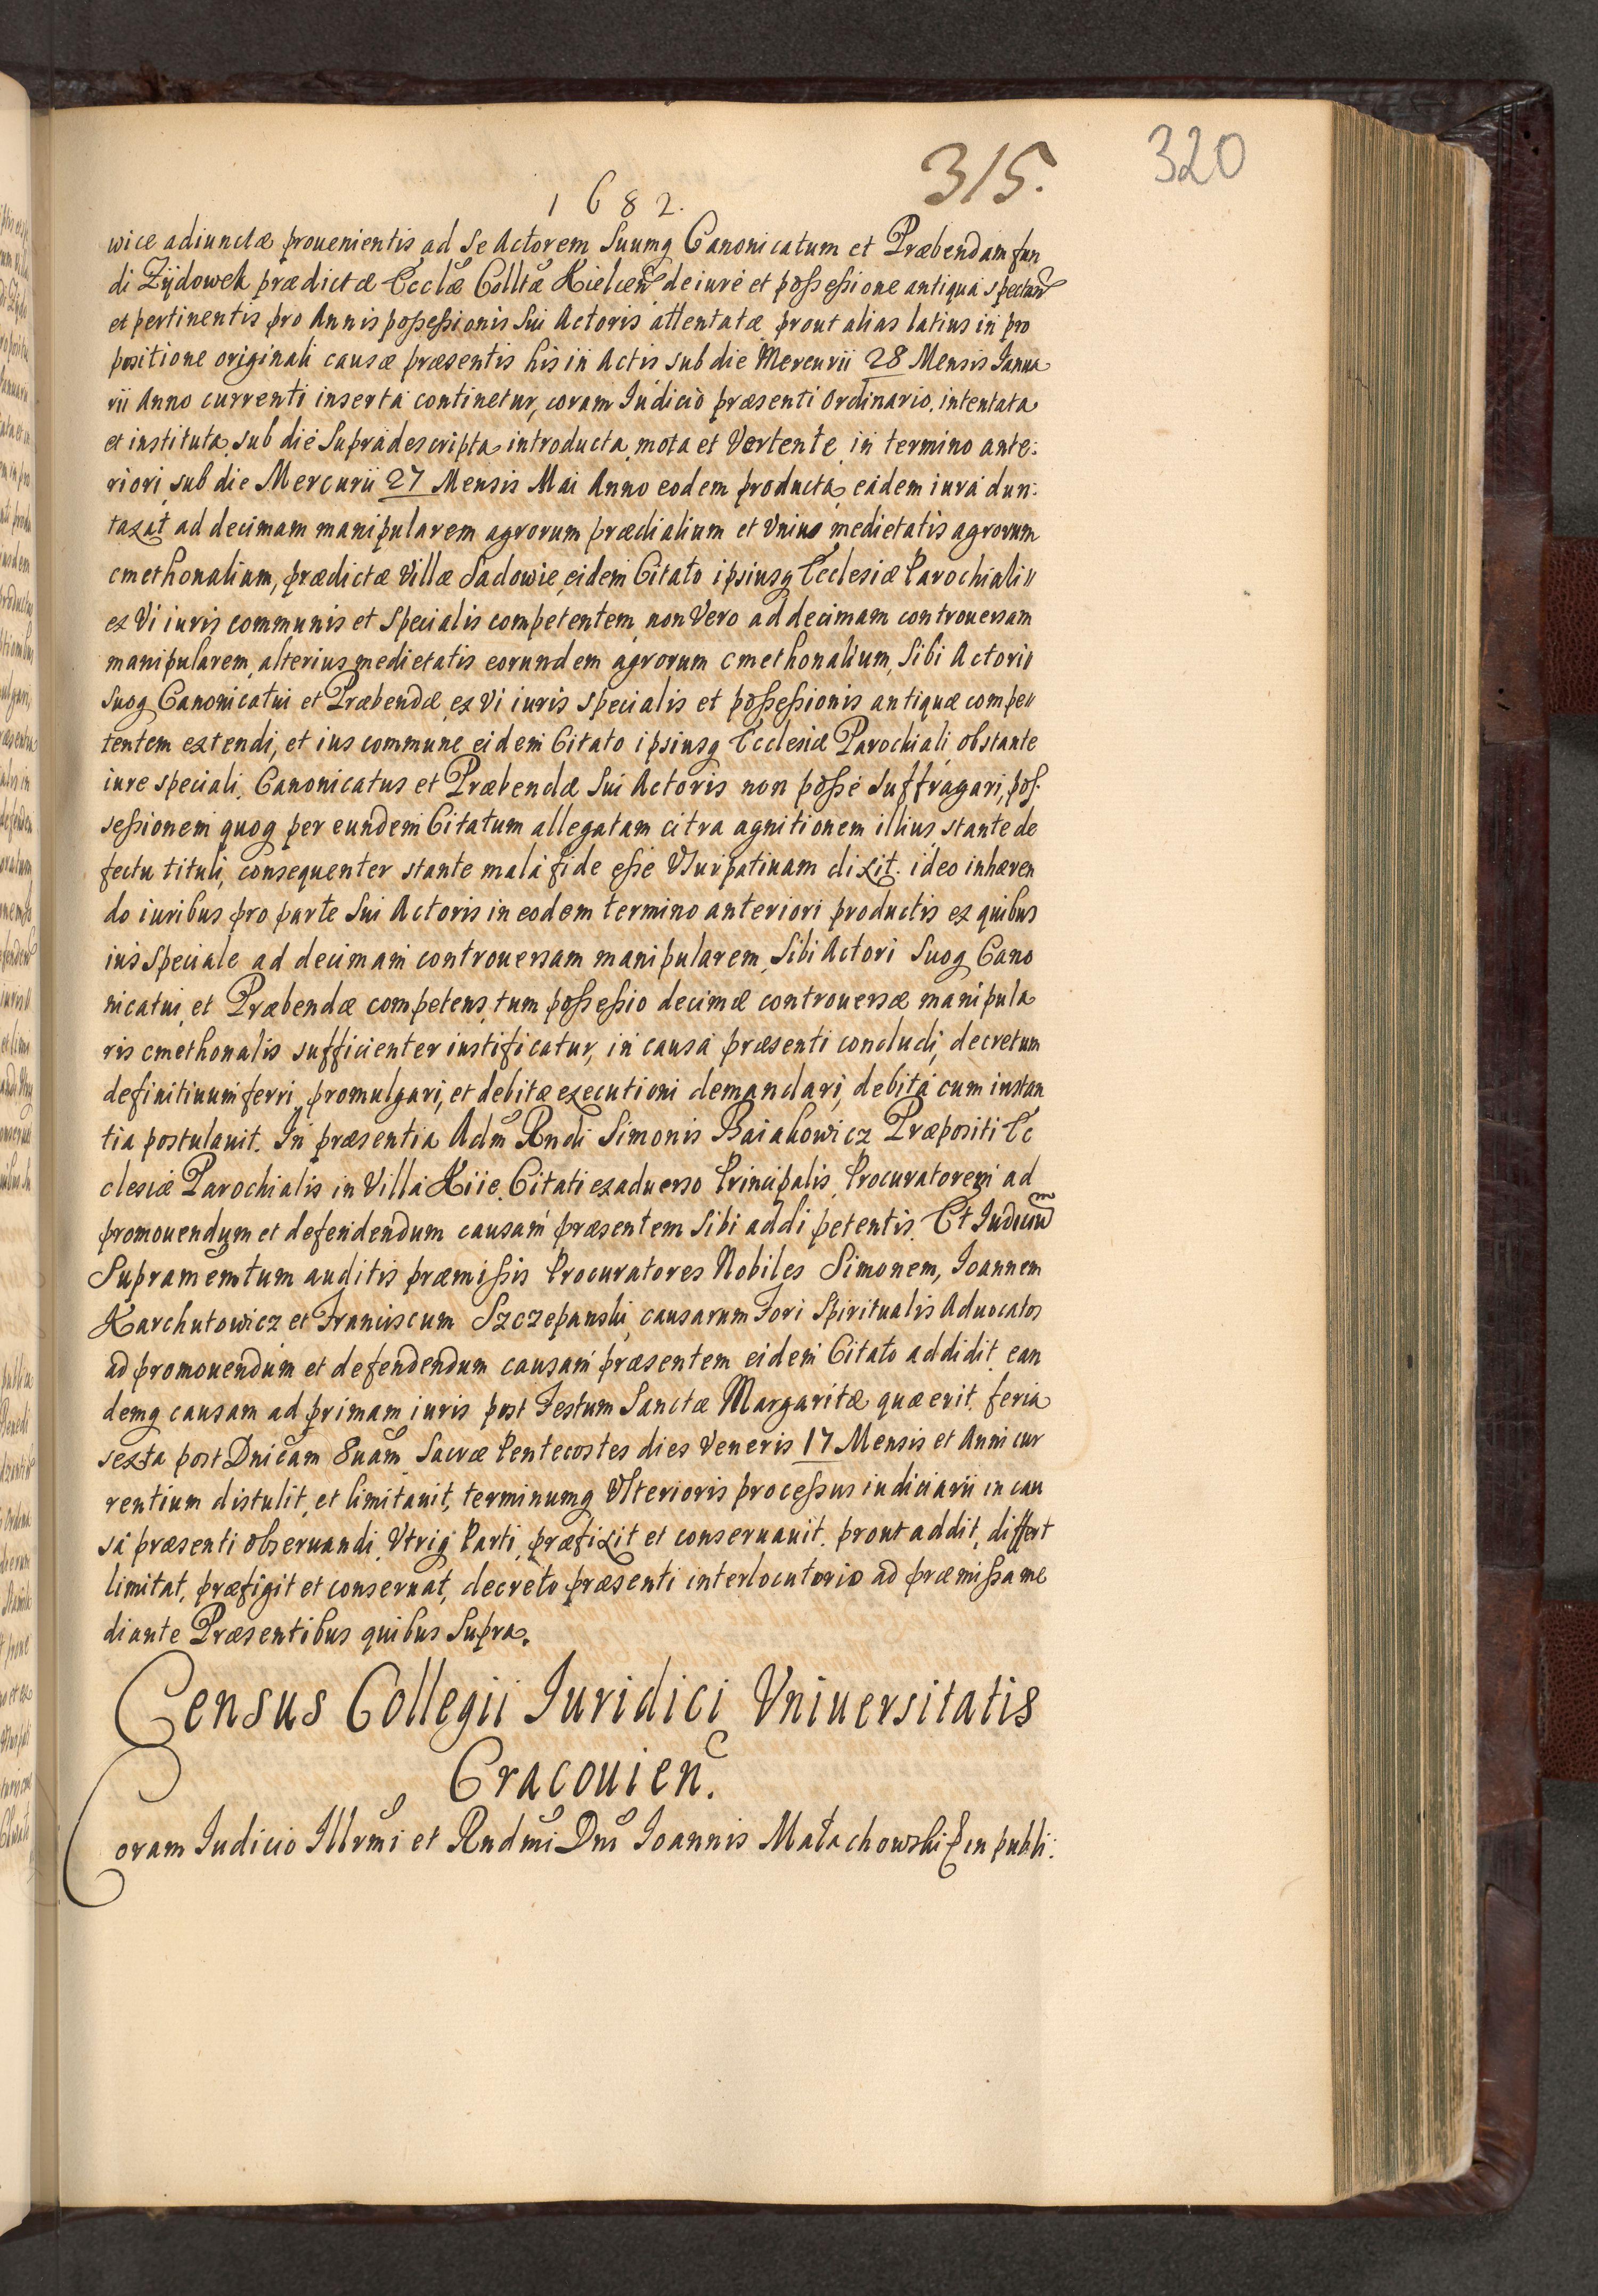 320
315.
1682.
wice adiunctæ prouenientis ad Se Actorem Suumq Canonicatum et Præbendam fun
di Zÿdowek prædictæ Ecclæ Colltæ Kielcen de iure et possessione antiqua spectan
et pertinentis pro Annis possessionis Sui Actoris attentatæ prout alias latius in pro
positione originali causæ præsentis his in Actis sub die Mercurii 28 Mensis Ianua
rii Anno currenti inserta continetur, coram Iudicio præsenti Ordinario, intentata
et instituta, sub die Supradescripta introducta, mota et Vertente, in termino ante:
riori sub die Mercurii 27 Mensis Mai Anno eodem producta, eadem iura dun:
taxat ad decimam manipularem agrorum prædialium et Vnius medietatis agrorum
cmethonalium, prædictæ Villæ Sadowie, eidem Citato ipsiusq Ecclesiæ Parochiali
ex Vi iuris communis et Specialis competentem, non Vero ad decimam controuersam
manipularem, alterius medietatis eorundem agrorum cmethonalium, Sibi Actori
Suoq Canonicatui et Præbendæ, ex Vi iuris specialis et possessionis antiquæ compe
tentem extendi, et ius commune eidem Citato ipsiusq Ecclesiæ Parochiali, obstante
iure speciali. Canonicatus et Præbendæ Sui Actoris non posse Suffragari, pos
sessionem quoq per eundem Citatum allegatam citra agnitionem illius, stante de
fectu tituli, consequenter stante mala fide esse Vsurpatiuam dixit. ideo inhæren
do iuribus pro parte Sui Actoris in eodem termino anteriori productis ex quibus
ius Speciale ad decimam controuersam manipularem, Sibi Actori Suoq Cano
nicatui et Præbendæ competens, tum possessio decimæ controuersæ manipula
ris cmethonalis sufficienter iustificatur, in causa præsenti concludi, decretum
definitiuum ferri, promulgari, et debitæ executioni demandari, debita cum instan
tia postulauit. In præsentia Adm Rndi Simonis Baiakowicz Præpositi Ec
clesiæ Parochialis in Villa Kiie, Citati ex aduerso Principalis, Procuratorem ad
promouendum et defendendum causam præsentem Sibi addi petentis. Et Iudicium
Supramemtum auditis præmissis Procuratores Nobiles Simonem, Ioannem
Karchutowicz et Franciscum Szczepanski, causarum Fori Spiritualis Aduocatos
ad promouendum et defendendum causam præsentem eidem Citato addidit, ean
demq causam ad primam iuris post Festum Sanctæ Margaritæ quæ erit feria
sexta post Dnicam 8uam Sacræ Pentecostes dies Veneris 17 Mensis et Anni cur
rentium distulit, et limitauit, terminumq Vlterioris processus iudiciarii in cau
sa præsenti obseruandi, Vtriq Parti, præfixit et conseruauit. prout addit, differt
limitat, præfigit et conseruat, decreto præsenti interlocutorio ad præmissa me
diante Præsentibus quibus Supra.
Census Collegii Iuridici Vniuersitatis
Cracouien.
Coram Iudicio Illrmi et Rndmi Dni Ioannis Małachowski in publi: